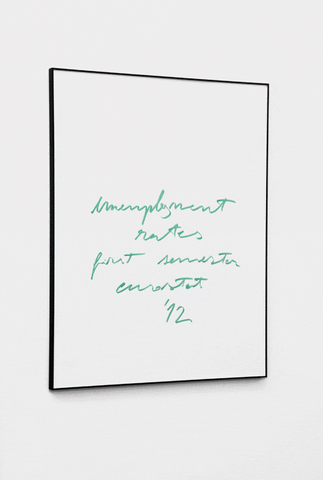 Unemployment
rates
first semester
eurostat
'12